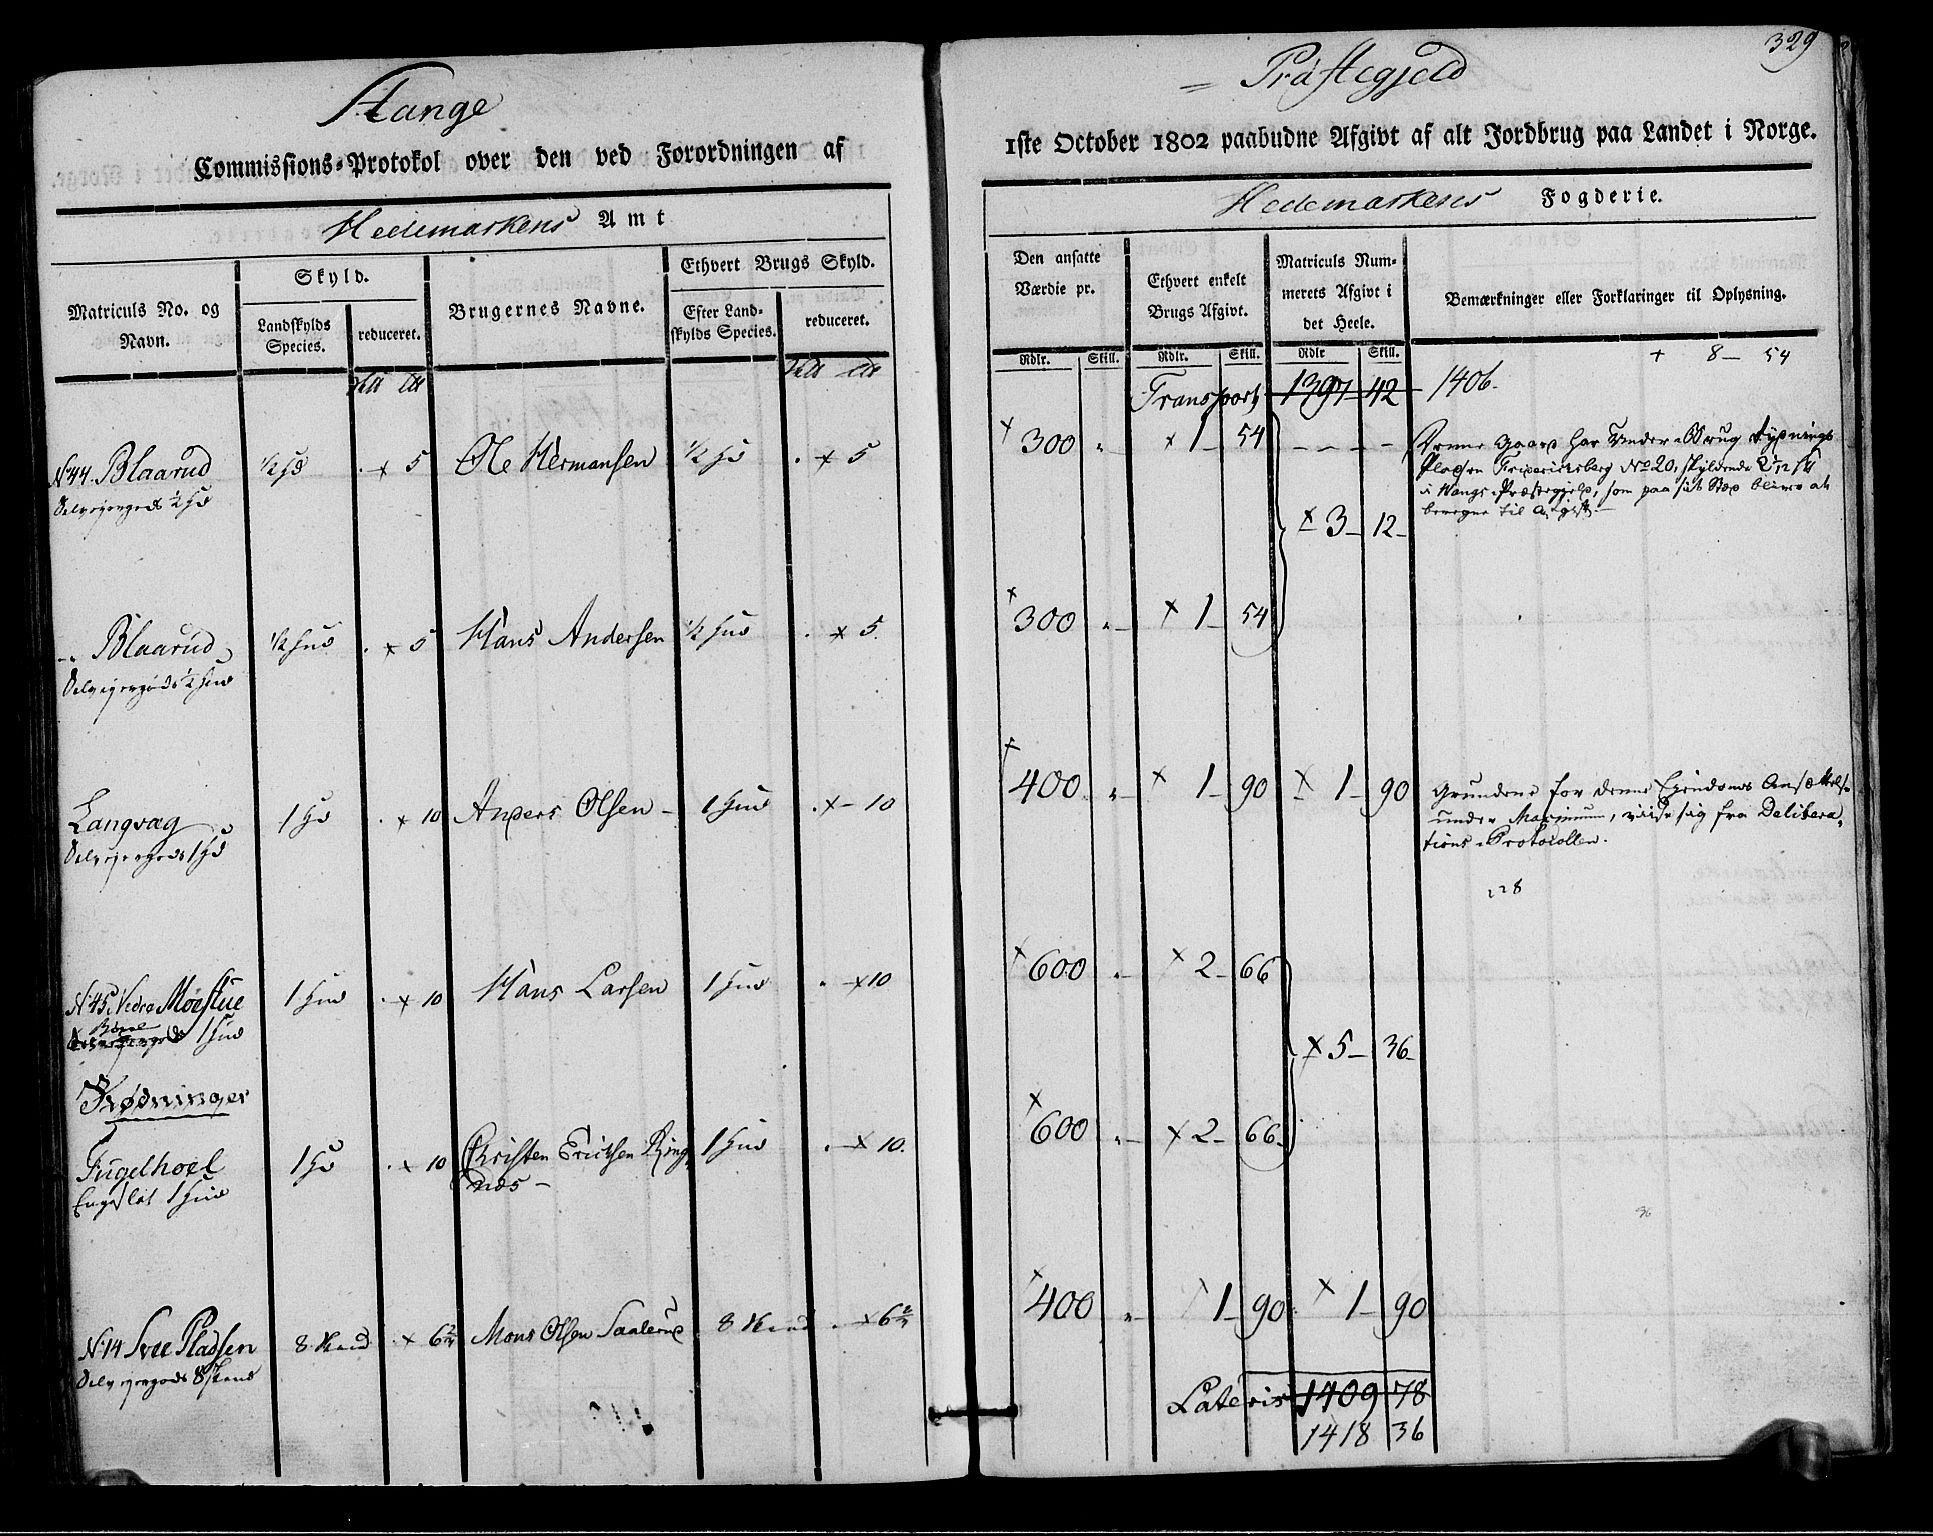 Stange
Commissions-Protokol over den ved Forordningen af
Hedemarkens Amt
Matriculs No. og Navn.
Skyld.
Landskylds Species.
reduceret.
Brugernes Navne.
Ethvert Brugs Skyld.
Efter Landskylds Species.
reduceret.
No 44. Blaarud ½ Hd . x 5 Ole Hermansen ½ Hd . x 5
Selveiergods ½ Hd
-„ Blaarud ½ Hud . x 5 Hans Andersen ½ Hud . x 5.
Selveiergods ½ Hud
Langvæg 1 Hd . x 10 Anders Olsen - 1 Hud . x - 10
Selveiergods 1 Hd
No 45 Nedre Moestue 1 Hud . x 10 Hans Larsen 1 Hud . x 10
1 Hud
Rødninger
Fugelhoel 1 Hd . x 10 Christen Erichsen Ring- 1 Hud . x 10.
1 Hud næs -
No 14 Svee Pladsen 8 Skind . x 6 2/4 Mons Olsen Saalerud 8 Skind . x 6
Selveiergods 8 Skind
329
= Præstegjeld
1ste October 1802 paabudne Afgivt af alt Jordbrug paa Landet i Norge.
Hedemarkens Fogderie.
Den ansatte Værdie pr.
Ethvert enkelt Brugs Afgivt.
Matriculs Nummerets Afgivt i det Heele.
Bemærkninger eller Forklaringer til Oplysning.
Rdlr. Skill. Rdlr. Skill. Rdlr Skill.
+ 8 - 54
Transport 1397 42 1406.
x 300 „ - x 1 - 54 - - - - Denne Gaard har Under-Brug Rydnings
Pladsen Friderichsberg No 20, skyldende
i Vangs Præstegjeld, som paa sit Sted bliver at
x 3 - 12 - beregne til Afgivt. -
x 300 „ - x 1 - 54
x 400 „ - x 1 - 90 x 1 - 90 Grundene for denne Eiendoms Ansættelse
under Maximum, viise sig fra Delibera-
tions-Protocollen.
228
x 600 „ - x 2 - 66
x 5 - 36 -
x 600 „ - x 2 - 66 -
x 400 „ - 1 - 90 x 1 - 90
Lateris 1409 78
1418 36